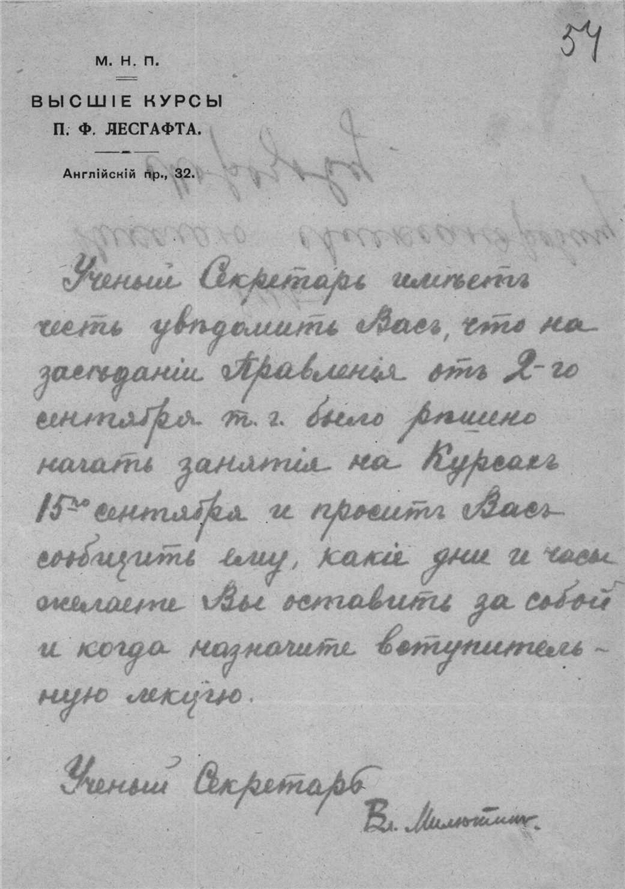 54
М. Н. П.
ВЫСШІЕ КУРСЫ
П. Ф. ЛЕСГАФТА.
Англійскій пр., 32.
Ученый Секретарь имѣетъ
честь увѣдомить Васъ, что на
засѣданіи Правленія отъ 2-го
сентября т. г. было рѣшено
начать занятія на Курсахъ
15го сентября и проситъ Васъ
сообщить ему, какіе дни и часы
желаете Вы оставить за собой
и когда назначите вступитель-
ную лекцію.
Ученый Секретарь
Вл. Милютинъ.